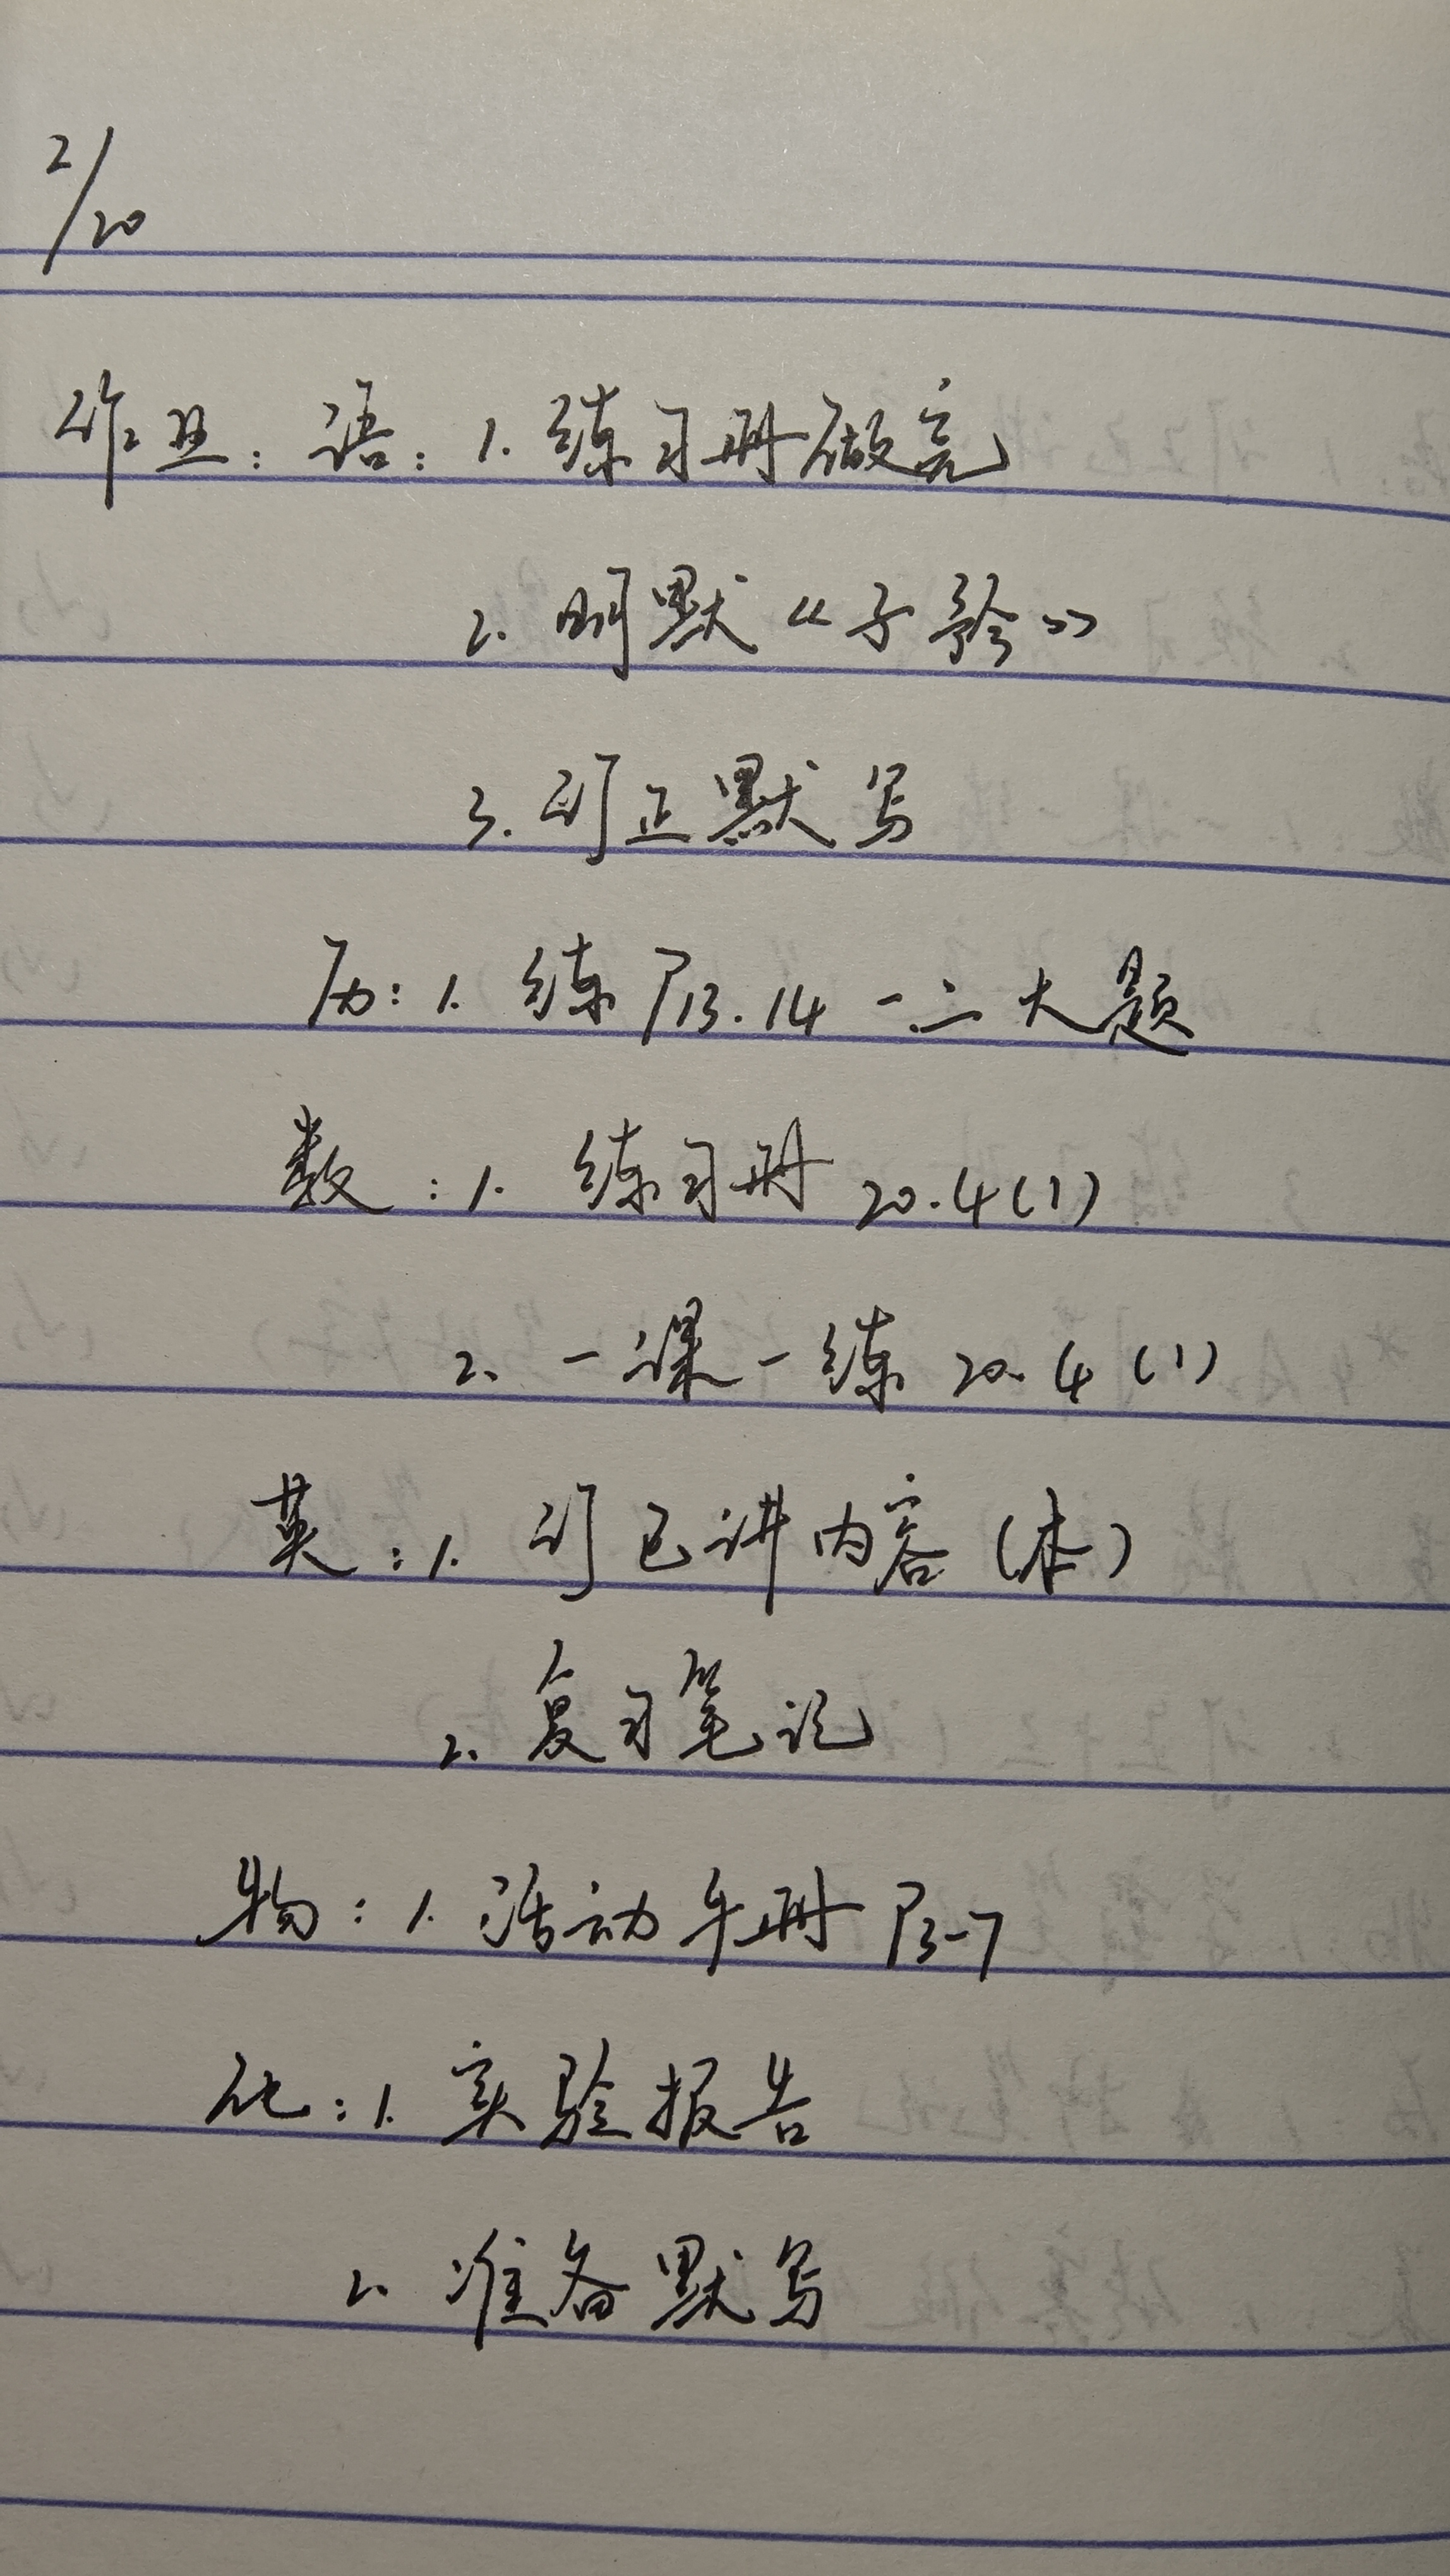 2/20
作业：语：1. 练习册做完
2. 明默《子矜》
3. 订正默写
历：1. 练P13.14 一.二大题
数：1. 练习册 20.4(1)
2. 一课一练 20.4(1)
英：1. 订已讲内容(本)
2. 复习笔记
物：1. 活动手册 P3-7
化：1. 实验报告
2. 准备默写